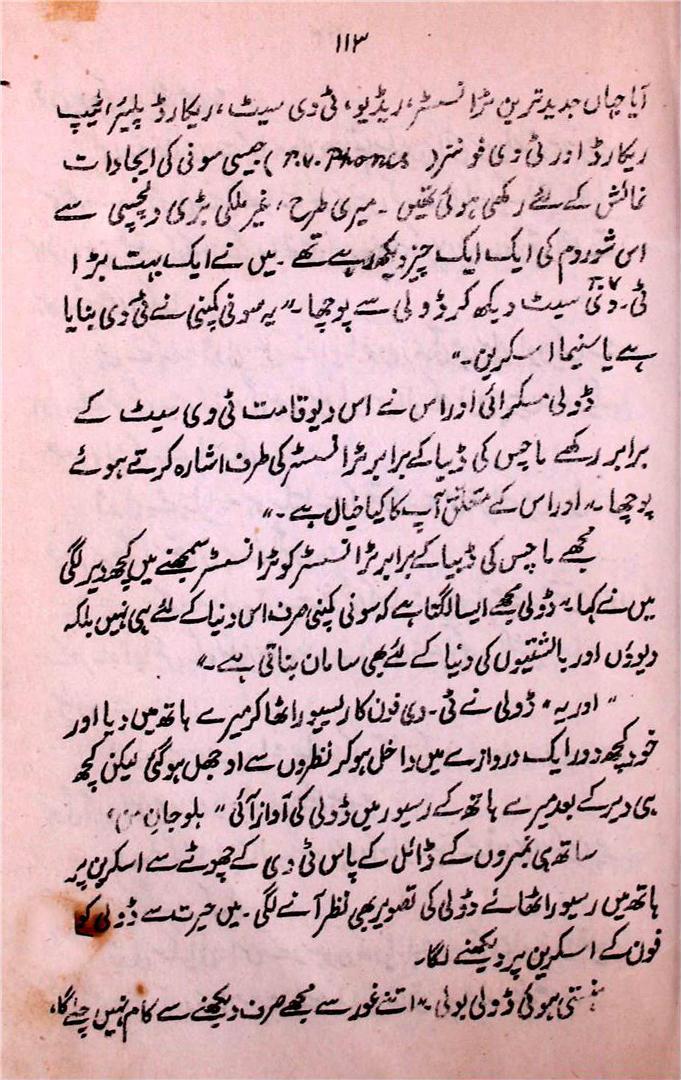 ۱۱۳
آیا جہاں جدید ترین ٹرانسسٹر، ریڈیو، ٹی وی سیٹ، ریکارڈ پلیئر، ٹیپ
ریکارڈ اور ٹی وی فونز ( T.V. Phones ) جیسی سونی کی ایجادات
نمائش کے لئے رکھی ہوئی تھیں ۔ میری طرح، غیر ملکی بڑی دلچسپی سے
اس شوروم کی ایک ایک چیز دیکھ رہے تھے ۔ میں نے ایک بہت بڑا
T.V
ٹی۔وی سیٹ دیکھ کر ڈولی سے پوچھا ۔ " یہ سونی کمپنی نے ٹی وی بنایا
ہے یا سنیما اسکرین ۔ "
ڈولی مسکرائی اور اس نے اس دیوقامت ٹی وی سیٹ کے
برابر رکھے ماچس کی ڈبیا کے برابر ٹرانسسٹر کی طرف اشارہ کرتے ہوئے
پوچھا " اور اس کے متعلق آپ کا کیا خیال ہے ۔ "
مجھے ماچس کی ڈبیا کے برابر ٹرانسسٹر کو ٹرانسسٹر سمجھنے میں کچھ دیر لگی
میں نے کہا " ڈولی مجھے ایسا لگتا ہے کہ سونی کمپنی صرف اس دنیا کے لئے ہی نہیں بلکہ
دیوؤں اور بالشتیوں کی دنیا کے لئے بھی سامان بناتی ہے ۔ "
" اور یہ " ڈولی نے ٹی ۔ وی فون کا رسیور اٹھا کر میرے ہاتھ میں دیا اور
خود کچھ دور ایک دروازے میں داخل ہو کر نظروں سے اوجھل ہو گئی لیکن کچھ
ہی دیر کے بعد میرے ہاتھ کے رسیور میں ڈولی کی آواز آئی " ہلو جانِ من "
ساتھ ہی نمبروں کے ڈائل کے پاس ٹی وی کے چھوٹے سے اسکرین پر
ہاتھ میں رسیور اٹھائے ڈولی کی تصویر بھی نظر آنے لگی ۔ میں حیرت سے ڈولی کو
فون کے اسکرین پر دیکھنے لگا ۔
ہنستی ہوئی ڈولی بولی " اتنے غور سے مجھے صرف دیکھنے سے کام نہیں چلے گا،